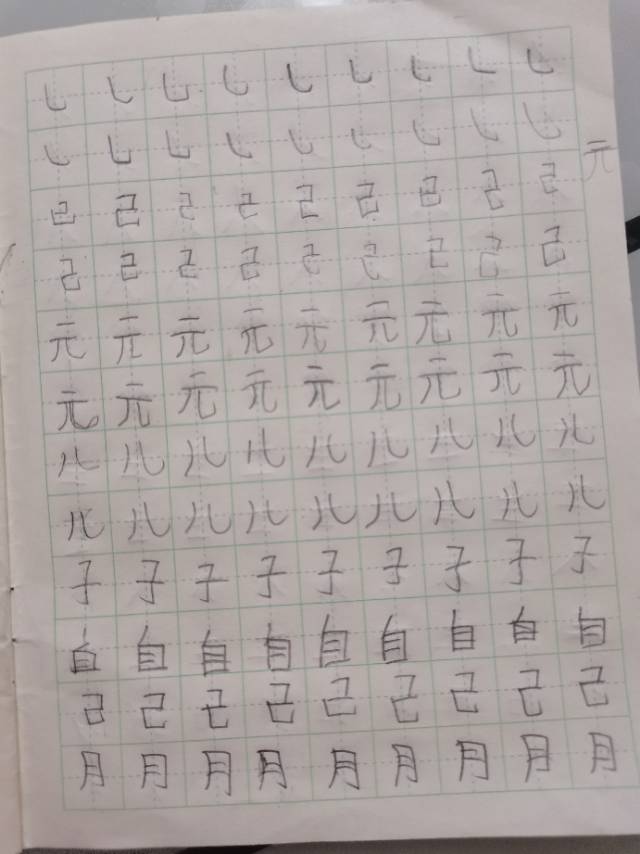 乚乚乚乚乚乚乚乚乚
乚乚乚乚乚乚乚乚乚
己己己己己己己己己 元
己己己己己己己己己
元元元元元元元元元
元元元元元元元元元
儿儿儿儿儿儿儿儿儿
儿儿儿儿儿儿儿儿儿
子子子子子子子子子
自自自自自自自自自
己己己己己己己己己
月月月月月月月月月